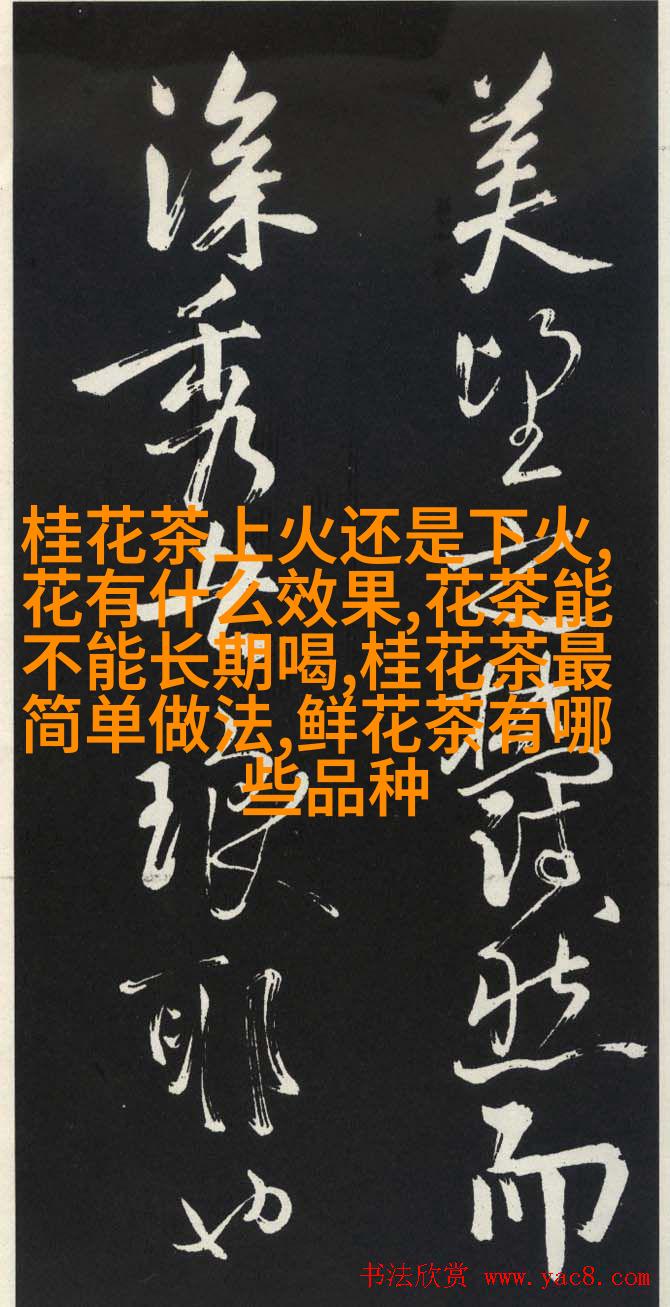 美望之蔚然而
深秀者琅耶也
桂花茶上火还是下火,
花有什么效果,花茶能
不能长期喝,桂花茶最
简单做法,鲜花茶有哪
些品种
书法欣赏 www.yac8.com